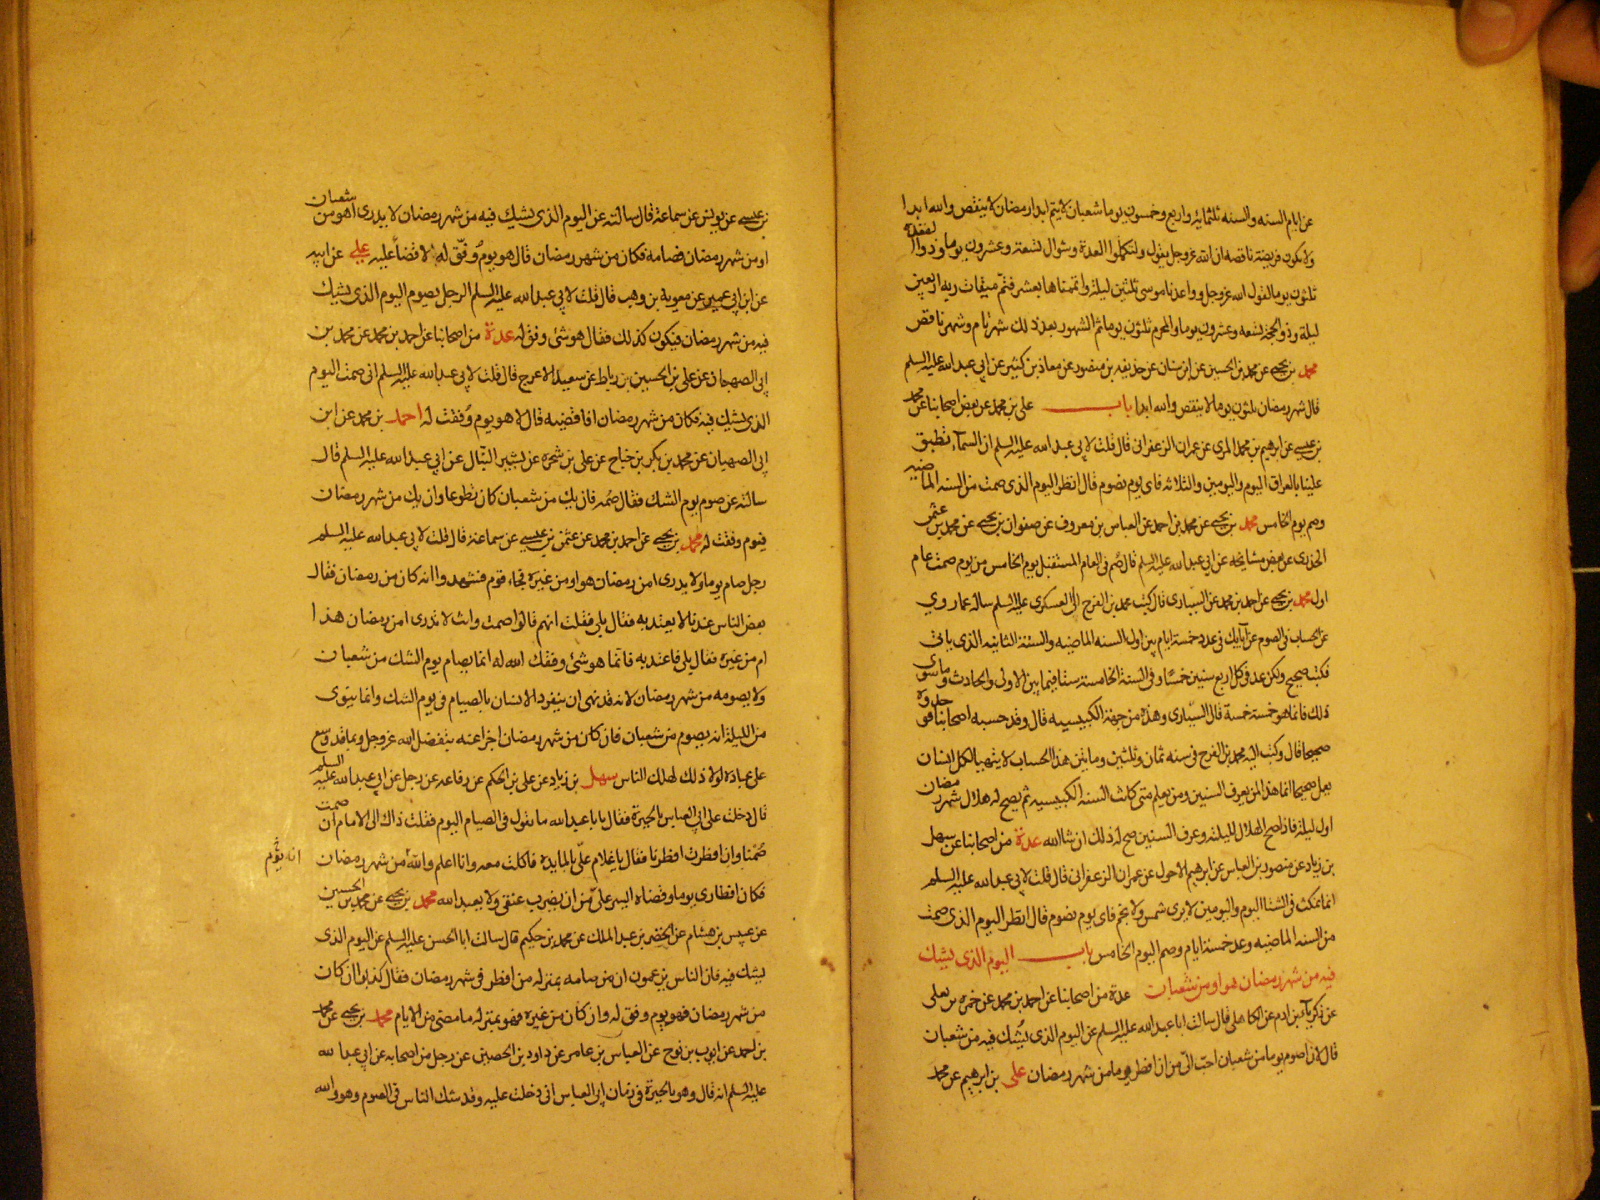 عن ايام السنه والسنه ثلثمايه واربع وخمسون يوما شعبان لا يتم ابدا رمضان لا ينقص والله ابدا
ولا يكون فريضة ناقصه ان الله عزوجل يقول ولتكملوا العدة وشوال تسعة وعشرون يوما وذوا القعده
ثلثون يوما لقول الله عزوجل وواعدنا موسى ثلثين ليلة واتممناها بعشر فتم ميقات ربه اربعين
ليلة وذوالحجة تسعه وعشرون يوما والمحرم ثلثون يوما ثم الشهور بعد ذلك شهر تام وشهر ناقص
محمد بن يحيى عن محمد بن الحسين عن ابن سنان عن حذيفه بن منصور عن معاذ بن كثير عن ابي عبدالله عليه السلم
قال شهر رمضان ثلثون يوما لا ينقص والله ابدا باب علي بن محمد عن بعض اصحابنا عن محمد
بن عيسى عن ابرهيم بن محمد المدني عن عمران الزعفراني قال قلت لابي عبدالله عليه السلم ان السمآء تطبق
علينا بالعراق اليوم واليومين والثلاثه فاي يوم نصوم قال انظر اليوم الذي صمت من السنه الماضيه
وصم يوم الخامس محمد بن يحيى عن محمد بن احمد عن العباس بن معروف عن صفوان بن يحيى عن محمد بن عثمن
الخدري عن بعض مشايخه عن ابي عبدالله عليه السلم قال صم في العام المستقبل يوم الخامس من يوم صمت عام
اول محمد بن يحيى عن احمد بن محمد عن السياري قال كتب محمد بن الفرج الى العسكري عليه السلم ساله عما روي
عن الحساب في الصوم عن آبايك في عدد خمسة ايام بين اول السنه الماضيه والسنة الثانيه الذي ياتي
فكتب صحيح ولكن عد في كل اربع سنين خمسا وفي السنة الخامسه ستا فيما بين الاولى والحادث وما سوى
ذلك فانما هو خمسة خمسة قال السياري وهذه من جهة الكبيسيه قال وقد حسبه اصحابنا فوجدوه
صحيحا قال وكتب اليه محمد بن الفرج في سنه ثمان وثلثين ومايتين هذا الحساب لا يتهيا لكل انسان
يعمل صحيحا انما هذا لمن يعرف السنين ومن يعلم متى كانت السنة الكبيسيه ثم يصح له هلال شهر رمضان
اول ليلة فاذا صح الهلال لليلته وعرف السنين صح له ذلك ان شا الله عدة من اصحابنا عن سهل
بن زياد عن منصور بن العباس عن ابرهيم الاحول عن عمران الزعفراني قال قلت لابي عبدالله عليه السلم
انا نمكث في الشتا اليوم واليومين لا يرى شمس ولا نجم فاي يوم نصوم قال انظر اليوم الذي صمت
من السنه الماضيه وعد خمسة ايام وصم اليوم الخامس باب اليوم الذي يشك
فيه من شهر رمضان هو او من شعبان عدة من اصحابنا عن احمد بن محمد عن حمزه بن يعلى
عن زكريا بن ادم عن الكاهلي قال سالت ابا عبدالله عليه السلم عن اليوم الذي يشك فيه من شعبان
قال لان اصوم يوما من شعبان احب الي من ان افطر يوما من شهر رمضان علي بن ابرهيم عن محمد
بن عيسى عن يونس عن سماعة قال سالته عن اليوم الذي يشك فيه من شهر رمضان لا يدرى اهو من شعبان
او من شهر رمضان فصامه فكان من شهر رمضان قال هو يوم وفق له لا قضا عليه علي عن ابيه
عن ابن ابي عمير عن معوية بن وهب قال قلت لابي عبدالله عليه السلم الرجل يصوم اليوم الذي يشك
فيه من شهر رمضان فيكون كذلك فقال هو شئ وفق له عدة من اصحابنا عن احمد بن محمد عن محمد بن
ابي الصهبان عن علي بن الحسين بن رباط عن سعيد الاعرج قال قلت لابي عبدالله عليه السلم اني صمت اليوم
الذي يشك فيه فكان من شهر رمضان افاقضيه قال لا هو يوم وفقت له احمد بن محمد عن ابن
ابي الصهبان عن محمد بن بكر بن جناح عن علي بن شجرة عن بشير النبال عن ابي عبدالله عليه السلم قال
سالته عن صوم يوم الشك فقال صمه فان يك من شعبان كان تطوعا وان يك من شهر رمضان
فيوم وفقت له محمد بن يحيى عن احمد بن محمد عن عثمن بن عيسى عن سماعة قال قلت لابي عبدالله عليه السلم
رجل صام يوما ولا يدري امن رمضان هو او من غيره فجاء قوم فشهدوا انه كان من رمضان فقال
بعض الناس عندنا لا يعتد به فقال بلى فقلت انهم قالوا صمت وانت لا تدري امن رمضان هذا
ام من غيره فقال بلى فاعتد به فانما هو شئ وفقك الله له انما يصام يوم الشك من شعبان
ولا يصومه من شهر رمضان لانه قد نهى ان ينفرد الانسان بالصيام في يوم الشك وانما ينوى
من الليلة انه يصوم من شعبان فان كان من شهر رمضان اجزا عنه بتفضل الله عزوجل وبما قد وسع
على عباده لولا ذلك لهلك الناس سهل بن زياد عن علي بن الحكم عن رفاعه عن رجل عن ابي عبدالله عليه السلم
قال دخلت على ابي العباس بالحيرة فقال يا با عبدالله ما تقول في الصيام اليوم فقلت ذاك الى الامام ان صمت
صمنا وان افطرت افطرنا فقال يا غلام علي بالمايده فاكلت معه وانا اعلم والله من شهر رمضان
انه يوم
فكان افطاري يوما وقضاه ايسر علي من ان يضرب عنقي ولا يعبدالله محمد بن يحيى عن محمد بن الحسين
عن عبيس بن هشام عن الخضر بن عبد الملك عن محمد بن حكيم قال سالت ابا الحسن عليه السلم عن اليوم الذي
يشك فيه فان الناس يزعمون ان من صامه بمنزله من افطر في شهر رمضان فقال كذبوا ان كان
من شهر رمضان فهو يوم وفق له وان كان من غيره فهو بمنزله ما مضى من الايام محمد بن يحيى عن محمد
بن احمد عن ايوب بن نوح عن العباس بن عامر عن داود بن الحصين عن رجل من اصحابه عن ابي عبدالله
عليه السلم انه قال وهو بالحيرة في زمان ابي العباس اني دخلت عليه وقد شك الناس في الصوم وهو والله